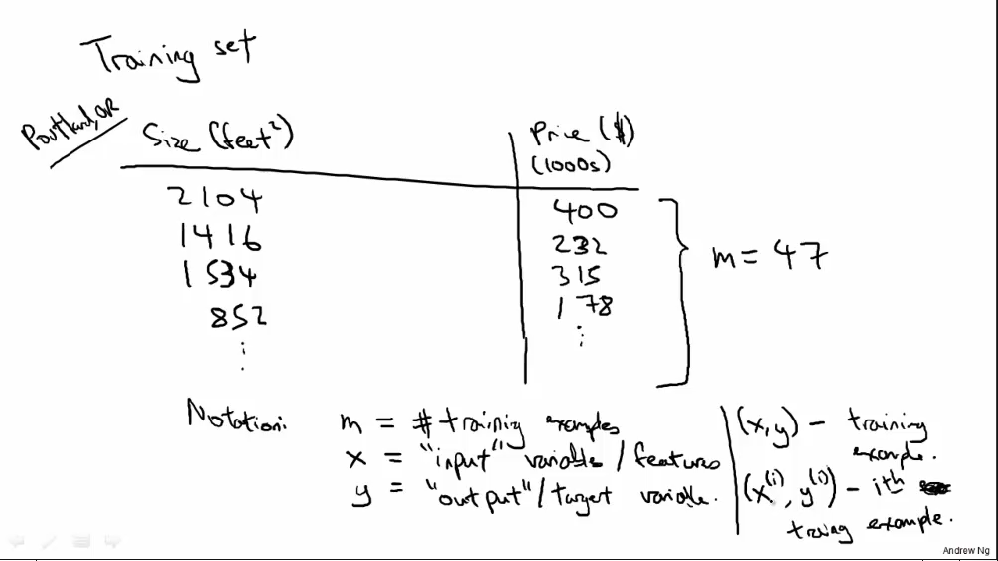 Training set
Portland, OR
Size (feet²) Price ($)
(1000s)
2104 400
1416 232
1534 315
852 178
⋮ ⋮
m = 47
Notation:
m = # training examples
x = "input" variables / features
y = "output" / target variable.
(x,y) - training
example.
(x⁽ⁱ⁾, y⁽ⁱ⁾) - ith
traing example.
Andrew Ng